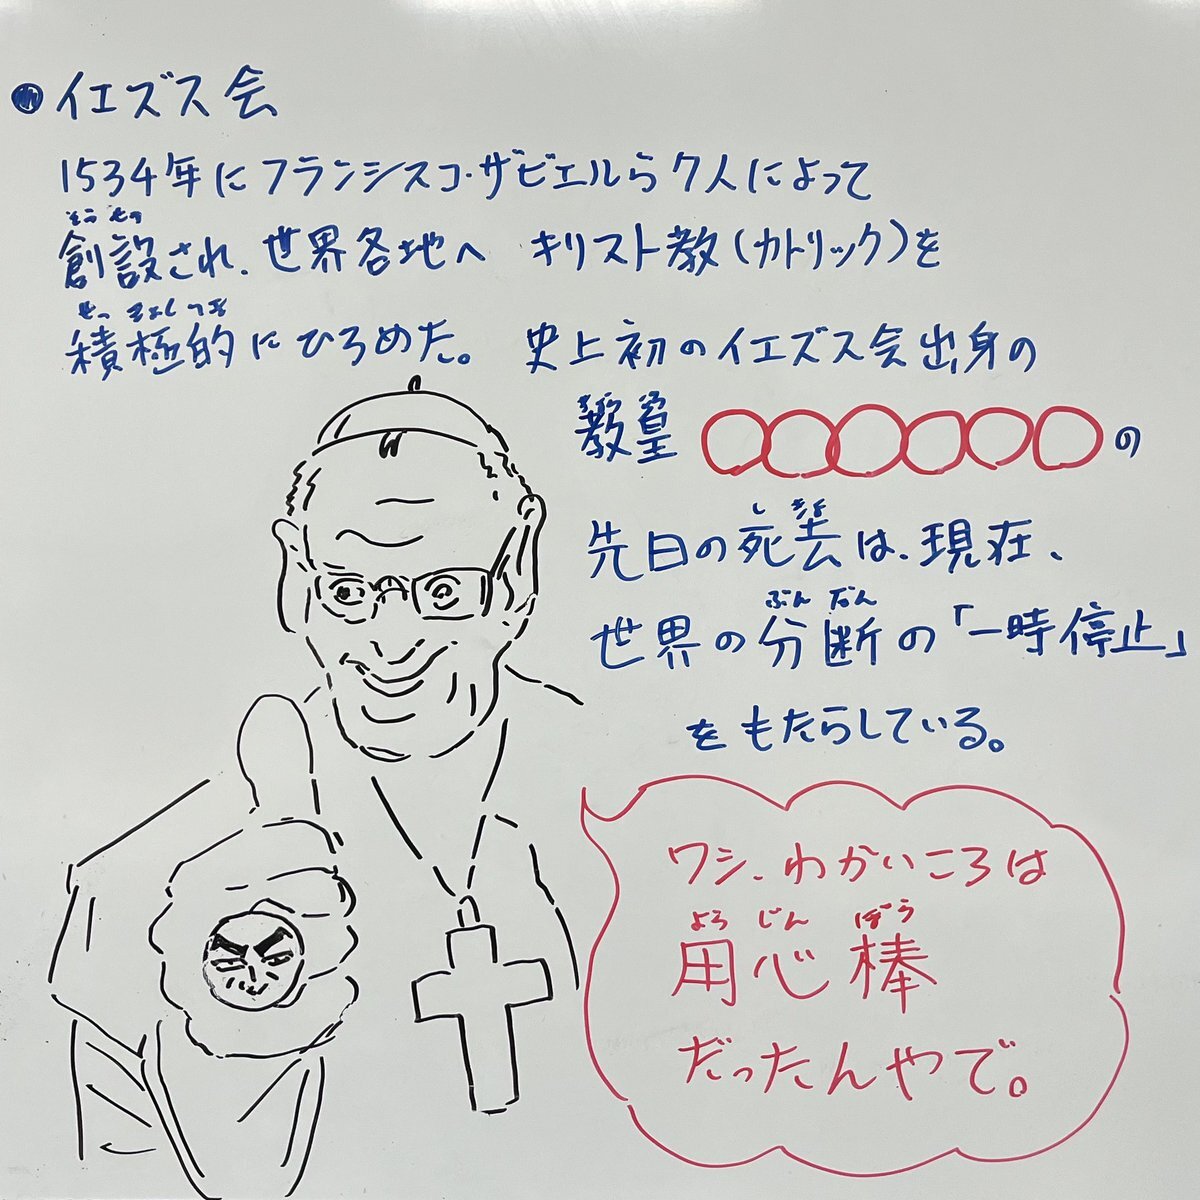 ●イエズス会
1534年にフランシスコ・ザビエルら7人によって
そうせつ
創設され、世界各地へ キリスト教(カトリック)を
せっきょくてき
積極的にひろめた。 史上初のイエズス会出身の
きょうこう
教皇 ○○○○○○の
しきょ
先日の死去は、現在、
ぶんだん
世界の分断の「一時停止」
をもたらしている。
ワシ、わかいころは
ようじんぼう
用心棒
だったんやで。